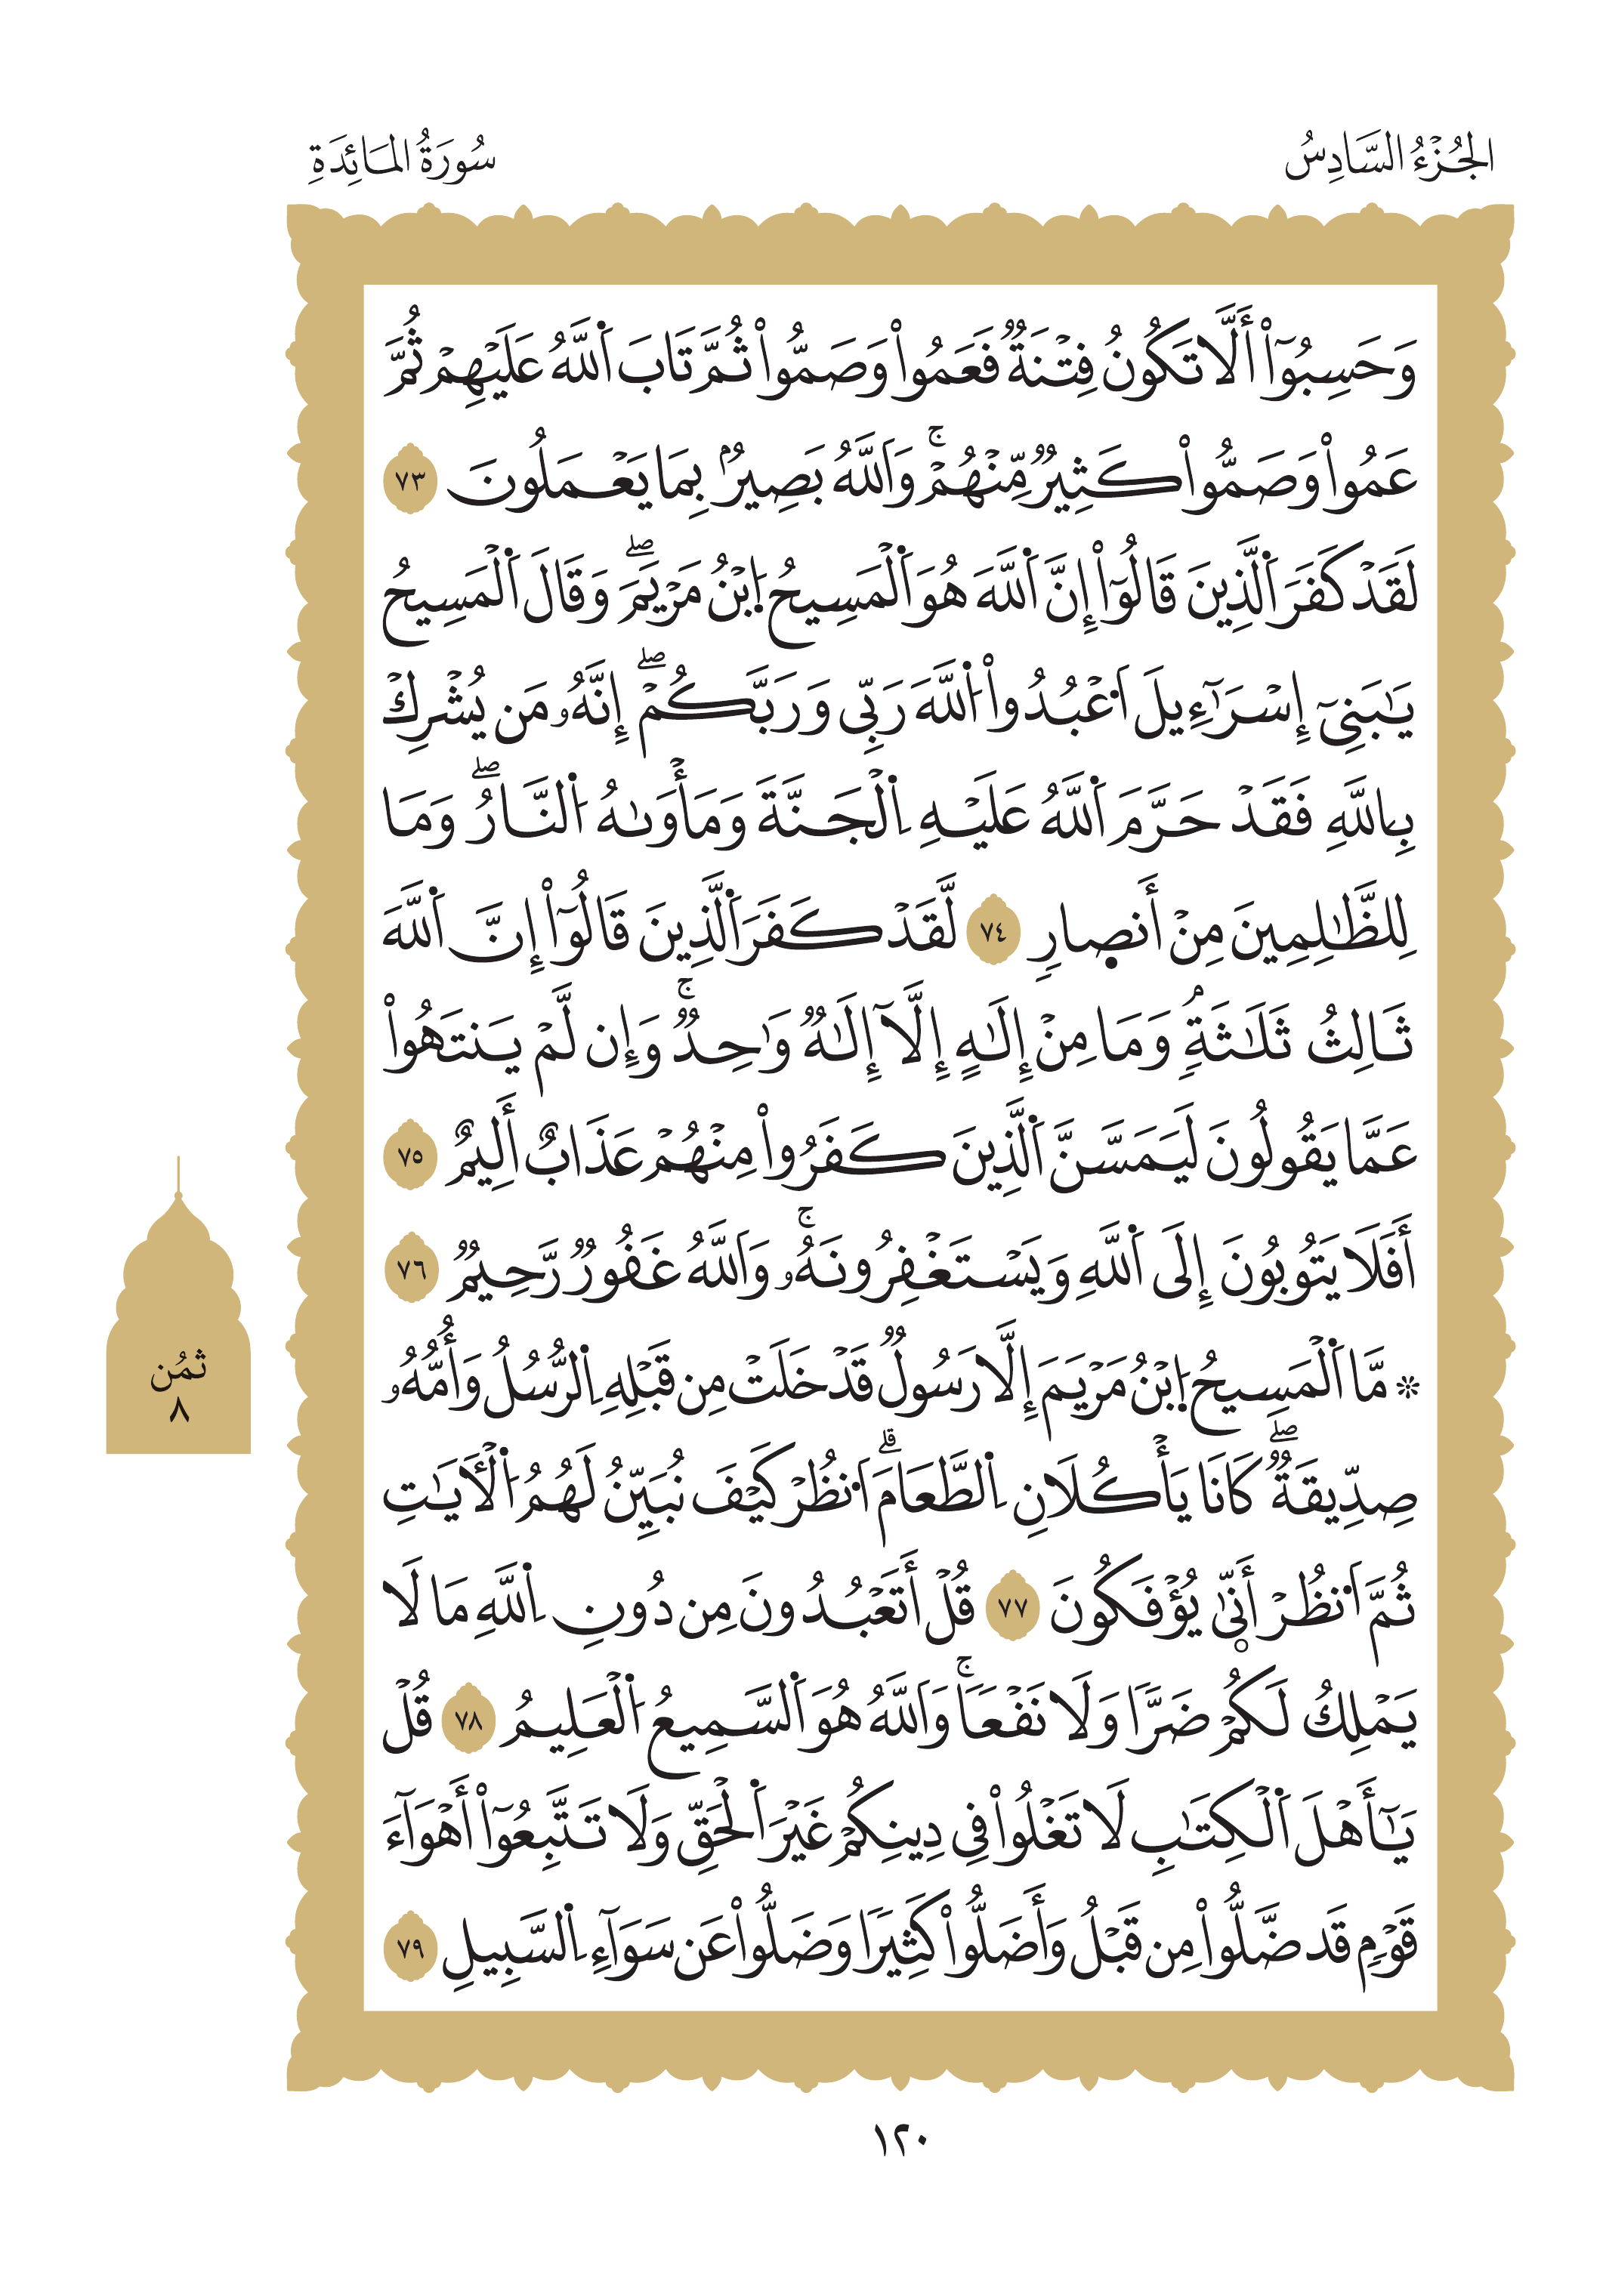 الجُزْءُ السَّادِسُ
سُورَةُ المَائِدَةِ
وَحَسِبُوٓاْ أَلَّا تَكُونُ فِتْنَةٞ فَعَمُواْ وَصَمُّواْ ثُمَّ تَابَ اَ۬للَّهُ عَلَيْهِمْ ثُمَّ
عَمُواْ وَصَمُّواْ كَثِيرٞ مِّنْهُمْۚ وَاَللَّهُ بَصِيرُۢ بِمَا يَعْمَلُونَ ٧٣
لَقَدْ كَفَرَ اَ۬لَّذِينَ قَالُوٓاْ إِنَّ اَ۬للَّهَ هُوَ اَ۬لْمَسِيحُ اُ۪بْنُ مَرْيَمَۖ وَقَالَ اَ۬لْمَسِيحُ
يَٰبَنِيٓ إِسْرَآءِيلَ اَ۟عْبُدُواْ اُ۬للَّهَ رَبِّي وَرَبَّكُمْۖ إِنَّهُۥ مَن يُشْرِكْ
بِاللَّهِ فَقَدْ حَرَّمَ اَ۬للَّهُ عَلَيْهِ اِ۬لْجَنَّةَ وَمَأْوَىٰهُ اُ۬لنَّارُۖ وَمَا
لِلظَّٰلِمِينَ مِنْ أَنصٜارِ ٧٤ لَّقَدْ كَفَرَ اَ۬لَّذِينَ قَالُوٓاْ إِنَّ اَ۬للَّهَ
ثَالِثُ ثَلَٰثَةِۢ وَمَا مِنْ إِلَٰهٍ إِلَّآ إِلَٰهٞ وَٰحِدٞۚ وَإِن لَّمْ يَنتَهُواْ
عَمَّا يَقُولُونَ لَيَمَسَّنَّ اَ۬لَّذِينَ كَفَرُواْ مِنْهُمْ عَذَابٌ أَلِيمٌ ٧٥
أَفَلَا يَتُوبُونَ إِلَى اَ۬للَّهِ وَيَسْتَغْفِرُونَهُۥۚ وَاَللَّهُ غَفُورٞ رَّحِيمٞ ٧٦
۞ مَّا اَ۬لْمَسِيحُ اُ۪بْنُ مَرْيَمَ إِلَّا رَسُولٞ قَدْ خَلَتْ مِن قَبْلِهِ اِ۬لرُّسُلُ وَأُمُّهُۥ
صِدِّيقَةٞۖ كَانَا يَأْكُلَانِ اِ۬لطَّعَامَۗ اَ۟نظُرْ كَيْفَ نُبَيِّنُ لَهُمُ اُ۬لْأٓيَٰتِ
ثُمَّ اَ۟نظُرْ أَنّ۪يٰ يُؤْفَكُونَ ٧٧ قُلْ أَتَعْبُدُونَ مِن دُونِ اِ۬للَّهِ مَا لَا
يَمْلِكُ لَكُمْ ضَرّٗا وَلَا نَفْعٗاۚ وَاَللَّهُ هُوَ اَ۬لسَّمِيعُ اُ۬لْعَلِيمُ ٧٨ قُلْ
يَٰٓأَهْلَ اَ۬لْكِتَٰبِ لَا تَغْلُواْ فِي دِينِكُمْ غَيْرَ اَ۬لْحَقِّ وَلَا تَتَّبِعُوٓاْ أَهْوَآءَ
قَوْمٖ قَد ضَّلُّواْ مِن قَبْلُ وَأَضَلُّواْ كَثِيرٗا وَضَلُّواْ عَن سَوَآءِ اِ۬لسَّبِيلِ ٧٩
ثمُن
٨
١٢٠